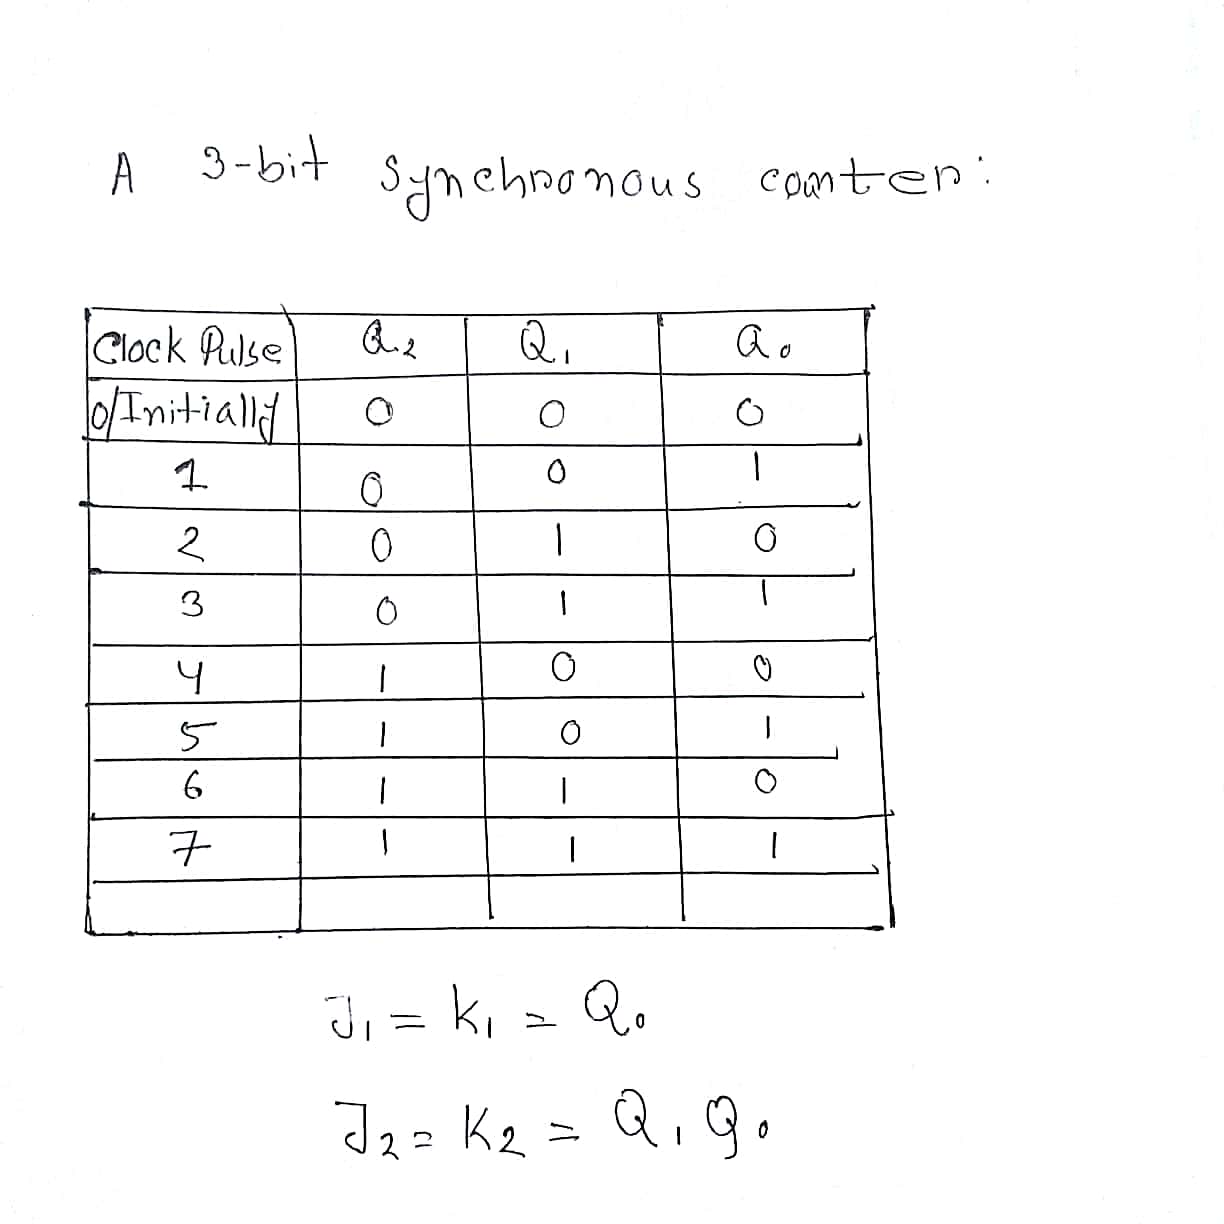 A 3-bit Synchronous counter:
Clock Pulse Q2 Q1 Q0
0/Initially 0 0 0
1 0 0 1
2 0 1 0
3 0 1 1
4 1 0 0
5 1 0 1
6 1 1 0
7 1 1 1
J1 = K1 = Q0
J2 = K2 = Q1 Q0